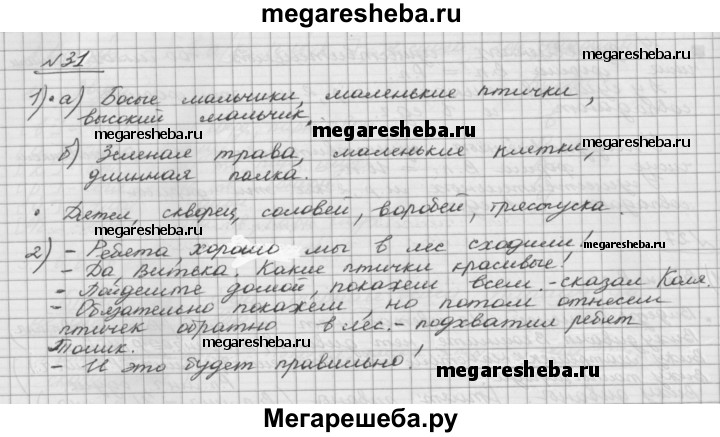 megaresheba.ru
№31
megaresheba.ru
1)• а) Босые мальчики, маленькие птички,
высокий мальчик.
megaresheba.ru
megaresheba.ru
б) Зеленая трава, маленькие клетки,
длинная палка.
megaresheba.ru
• Дятел, скворец, соловей, воробей, трясогузка.
2) - Ребята, хорошо мы в лес сходили!
megaresheba.ru
- Да, Витька. Какие птички красивые!
- Пойдемте домой, покажем всем. - сказал Коля.
- Обязательно покажем, но потом отнесем
птичек обратно в лес. - подхватил ребят
Толик.
- И это будет правильно!
megaresheba.ru
Мегарешеба.ру